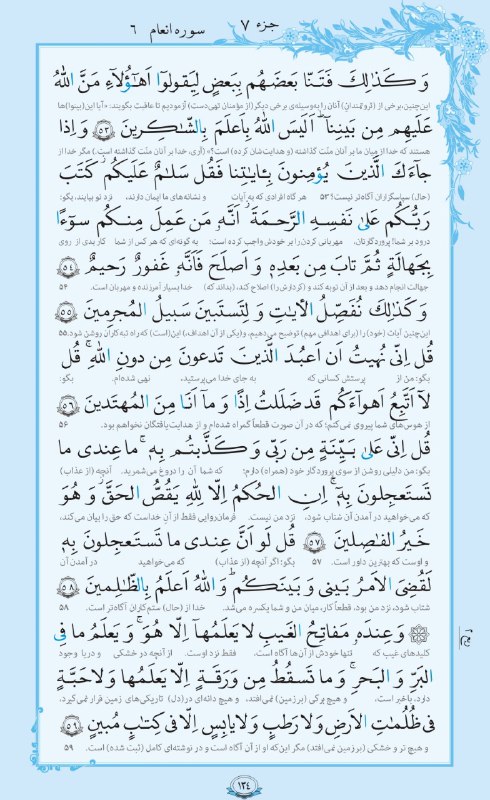 جزء ۷
سوره انعام ۶
وَ كَذٰلِكَ فَتَنّا بَعضَهُم بِبَعضٍ لِيَقولوا اَهٰؤُلاٰءِ مَنَّ اللهُ
این‌چنین، برخی از (ثروتمندان) آنان را به‌وسیله‌ی برخی دیگر (از مؤمنان تهی‌دست) آزمودیم تا عاقبت بگویند: «آیا این(بینوا)ها
عَلَيهِم مِن بَينِنا اَلَيسَ اللهُ بِاَعلَمَ بِالشّاكِرينَ ﴿۵۳﴾ وَ اِذا
هستند که خدا از میان ما بر آنان منّت گذاشته (و هدایت‌شان کرده) است؟» (آری، خدا بر آنان منّت گذاشته است.) مگر خدا از
جاءَكَ الَّذينَ يُؤمِنونَ بِـٔاياتِنا فَقُل سَلامٌ عَلَيكُم كَتَبَ
(حال) سپاسگزاران آگاه‌تر نیست؟ ۵۳ هر گاه افرادی که به آیات و نشانه‌های ما ایمان دارند، نزد تو بیایند، بگو:
رَبُّكُم عَلىٰ نَفسِهِ الرَّحمَةَ اَنَّهُ مَن عَمِلَ مِنكُم سوءًا
درود بر شما! پروردگارتان، مهربانی کردن را بر خودش واجب کرده است؛ به گونه‌ای که هر کس از شما کار بدی از روی
بِجَهالَةٍ ثُمَّ تابَ مِن بَعدِهِ وَ اَصلَحَ فَاَنَّهُ غَفورٌ رَحيمٌ ﴿۵۴﴾
جهالت انجام دهد و بعد از آن توبه کند و (کردارش را) اصلاح کند، (بداند که) خدا بسیار آمرزنده و مهربان است. ۵۴
وَ كَذٰلِكَ نُفَصِّلُ الآياتِ وَ لِتَستَبينَ سَبيلُ المُجرِمينَ ﴿۵۵﴾
این‌چنین آیات (خود) را (برای اهدافی مهم) توضیح می‌دهیم، و (یکی از آن اهداف،) (این) است (که) راه تبه‌کاران روشن شود. ۵۵
قُل اِنّي نُهيتُ اَن اَعبُدَ الَّذينَ تَدعونَ مِن دونِ اللهِ قُل
بگو: من از پرستش کسانی که به جای خدا می‌پرستید، نهی شده‌ام. بگو:
لا اَتَّبِعُ اَهواءَكُم قَد ضَلَلتُ اِذًا وَ ما اَنَا مِنَ المُهتَدينَ ﴿۵۶﴾
از هوس‌های شما پیروی نمی‌کنم؛ که در آن صورت قطعاً گمراه شده‌ام و از هدایت‌یافتگان نخواهم بود. ۵۶
قُل اِنّي عَلىٰ بَيِّنَةٍ مِن رَبّي وَ كَذَّبتُم بِهِ ما عِندي ما
بگو: من دلیلی روشن از سوی پروردگار خود (همراه) دارم؛ که شما آن را دروغ می‌شمرید. آنچه (از عذاب)
تَستَعجِلونَ بِهِ اِنِ الحُكمُ اِلّا لِلّٰهِ يَقُصُّ الحَقَّ وَ هُوَ
که می‌خواهید در آمدن آن شتاب شود، نزد من نیست. فرمان‌روایی فقط از آنِ خداست که حق را بیان می‌کند،
خَيرُ الفاصِلينَ ﴿۵۷﴾ قُل لَو اَنَّ عِندي ما تَستَعجِلونَ بِهِ
و اوست که بهترین داور است. ۵۷ بگو: اگر آنچه (از عذاب) که می‌خواهید در آمدن آن
لَقُضِيَ الاَمرُ بَيني وَ بَينَكُم وَ اللهُ اَعلَمُ بِالظّالِمينَ ﴿۵۸﴾
شتاب شود، نزد من بود، قطعاً کار، میان من و شما یکسره می‌شد. خدا از (حال) ستم‌کاران آگاه‌تر است. ۵۸
وَ عِندَهُ مَفاتِحُ الغَيبِ لا يَعلَمُها اِلّا هُوَ وَ يَعلَمُ ما فِي
کلیدهای غیب که تنها خودش از آن‌ها آگاه است، فقط نزد اوست. از آنچه در خشکی و دریا وجود
البَرِّ وَ البَحرِ وَ ما تَسقُطُ مِن وَرَقَةٍ اِلّا يَعلَمُها وَ لا حَبَّةٍ
دارد، باخبر است، و هیچ برگی (بر زمین) نمی‌افتد، و هیچ دانه‌ای در (دل) تاریکی‌های زمین قرار نمی‌گیرد،
في ظُلُماتِ الاَرضِ وَ لا رَطبٍ وَ لا يابِسٍ اِلّا في كِتابٍ مُبينٍ ﴿۵۹﴾
و هیچ تر و خشکی (بر زمین نمی‌افتد) مگر این‌که او از آن آگاه است و در نوشته‌ای کامل (ثبت شده) است. ۵۹
۱۳۴